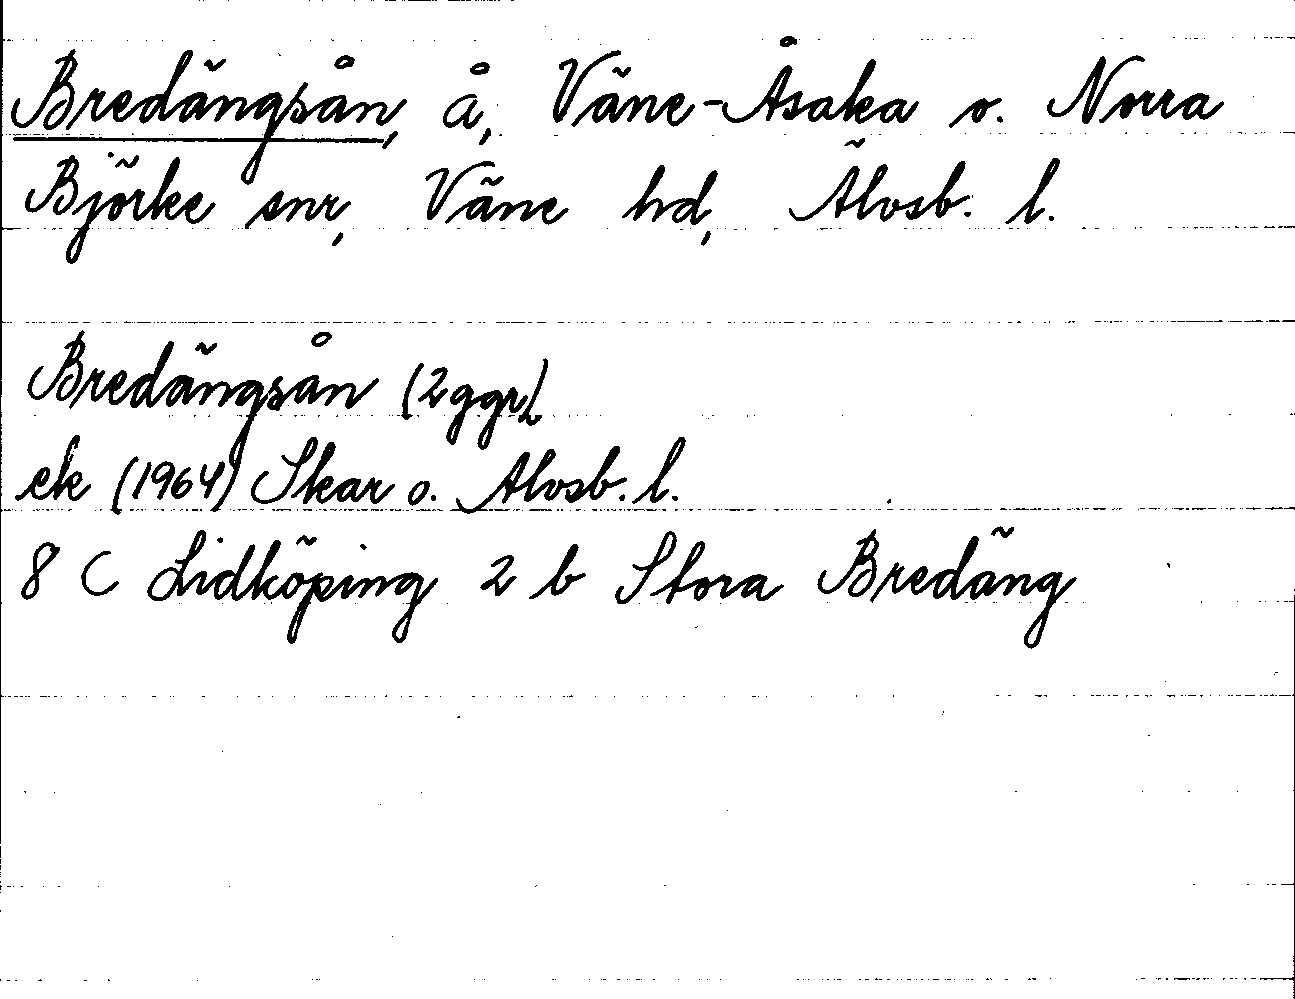 Bredängsån, å, Väne-Åsaka o. Norra
Björke snr, Väne hd, Älvsb. l.
Bredängsån (2 ggr)
ek (1964) Skar o. Alvsb. l.
8 C Lidköping 2 b Stora Bredäng